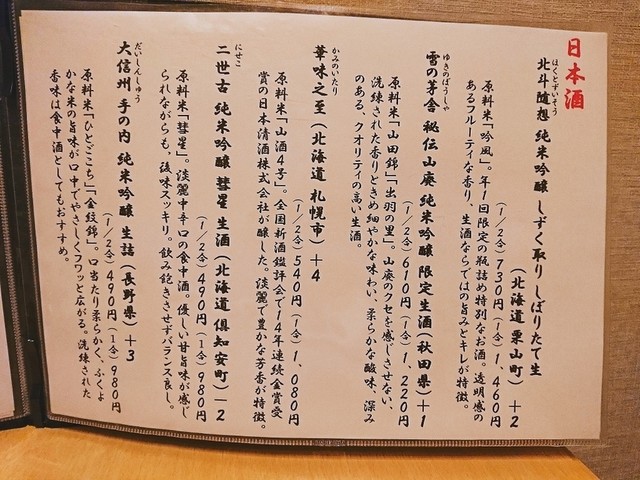 日本酒
ほくとずいそう
北斗随想 純米吟醸 しずく取り しぼりたて生
(北海道 栗山町) +2
(1/2合)730円(1合)1,460円
原料米「吟風」。年1回限定の瓶詰め特別なお酒。透明感の
あるフルーティな香り、生酒ならではの旨みとキレが特徴。
ゆきのぼうしゃ
雪の茅舎 秘伝山廃 純米吟醸 限定生酒(秋田県)+1
(1/2合)610円(1合)1,220円
原料米「山田錦」「出羽の里」。山廃のクセを感じさせない、
洗練された香りときめ細やかな味わい、柔らかな酸味、深み
のある、クオリティの高い生酒。
かみのいたり
華味之至(北海道 札幌市)+4
(1/2合)540円(1合)1,080円
原料米「山酒4号」。全国新酒鑑評会で14年連続金賞受
賞の日本清酒株式会社が醸した。淡麗で豊かな芳香が特徴。
にせこ
二世古 純米吟醸 彗星 生酒(北海道 倶知安町)-2
(1/2合)490円(1合)980円
原料米「彗星」。淡麗中辛口の食中酒。優しい甘旨味が感じ
られながらも、後味スッキリ。飲み飽きさせずバランス良し。
だいしんしゅう
大信州 手の内 純米吟醸 生詰(長野県)+3
(1/2合)490円(1合)980円
原料米「ひとごこち」「金紋錦」。口当たり柔らかく、ふくよ
かな米の旨味が口中でやさしくフワッと広がる。洗練された
香味は食中酒としてもおすすめ。